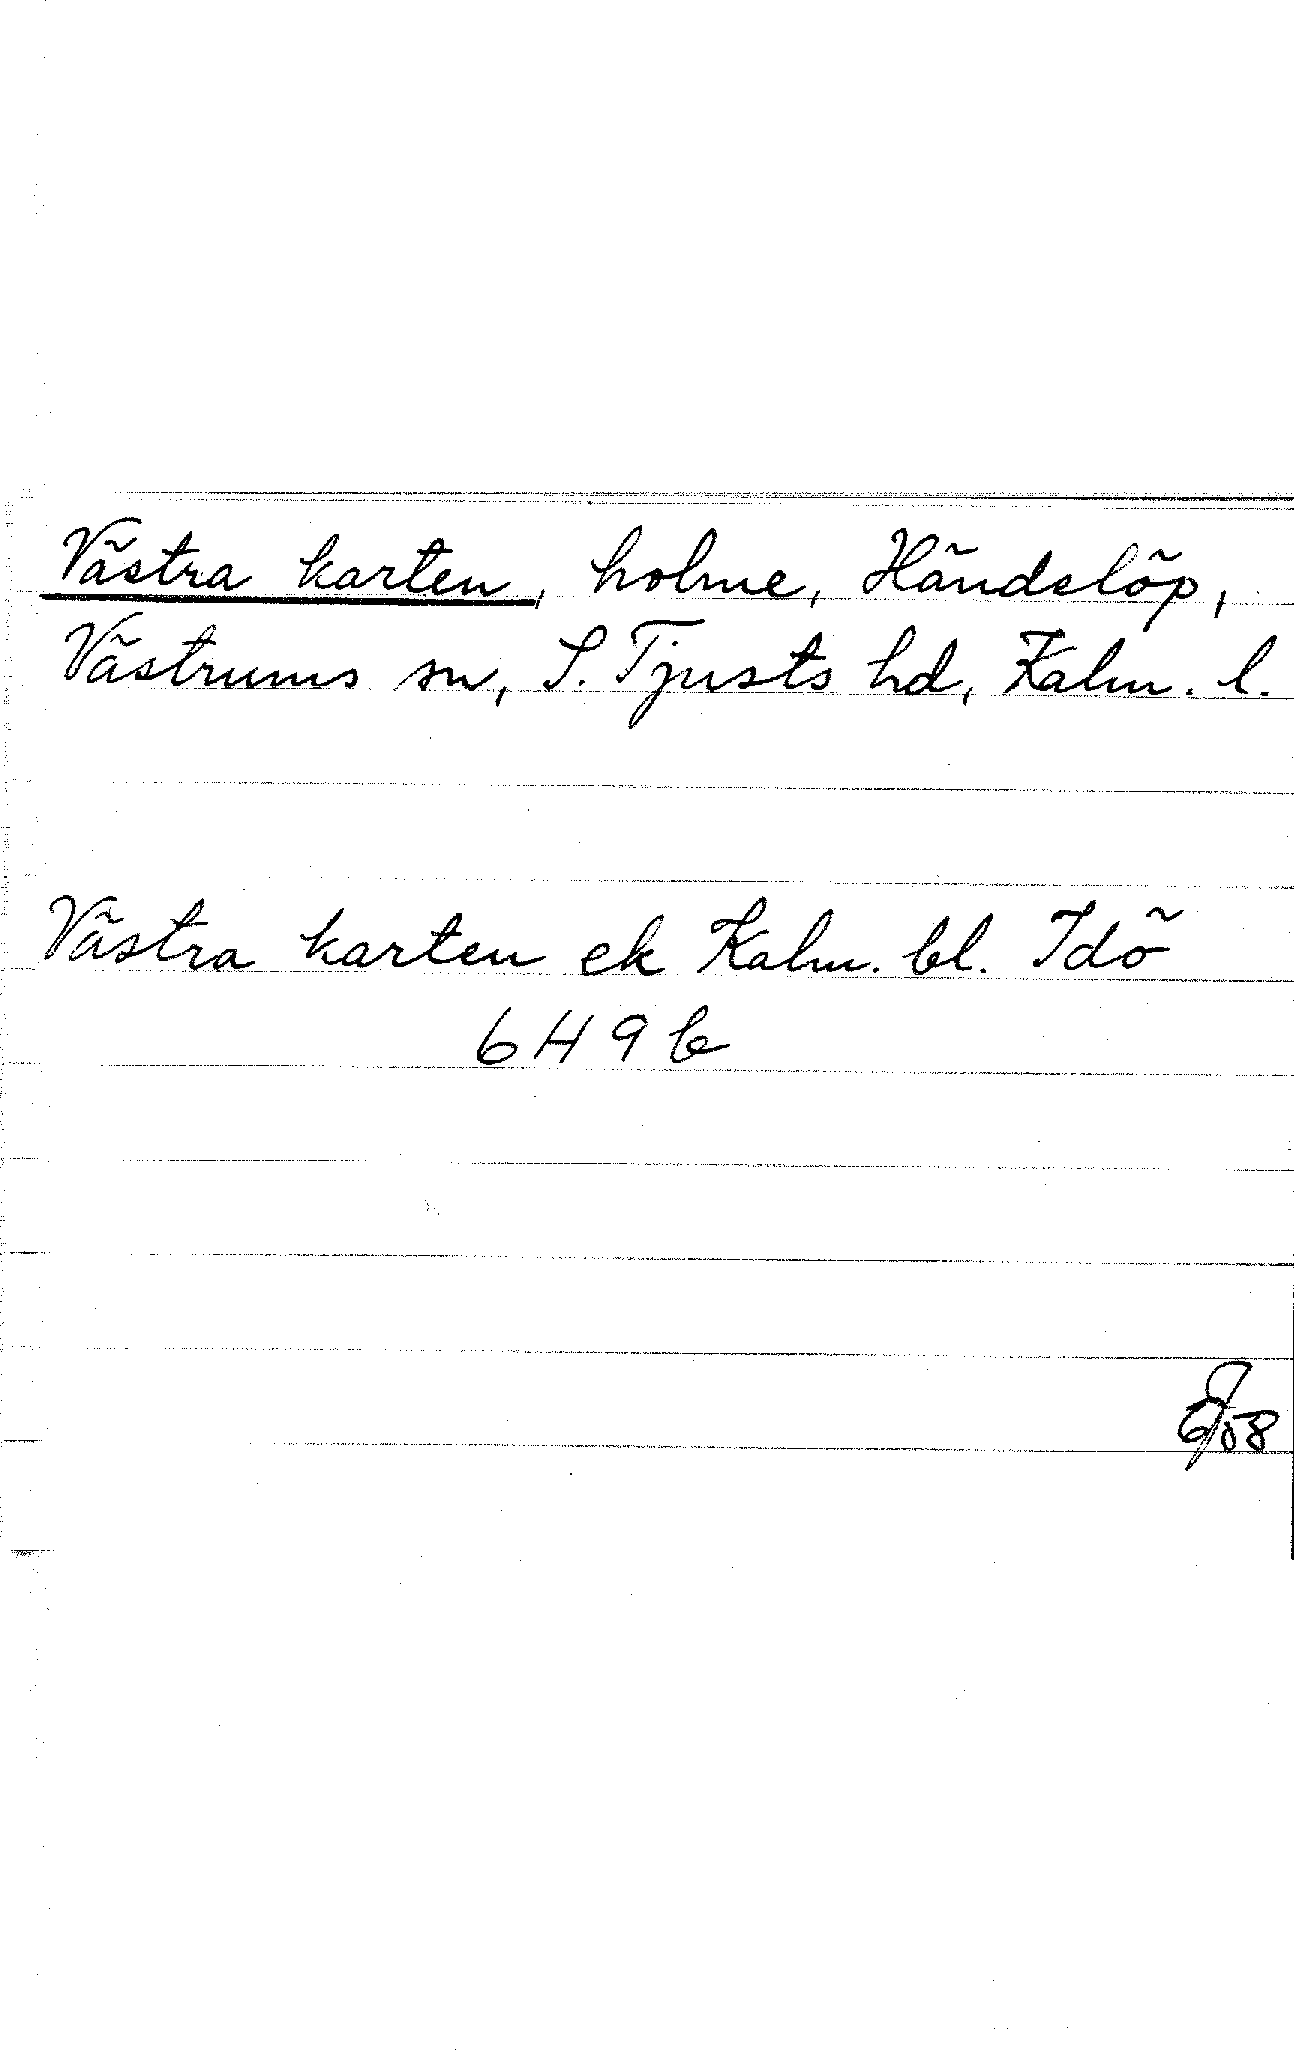 Västra karten, holme, Händelöp,
Västrums sn, S. Tjusts hd, Kalm. l.
Västra karten ek Kalm. bl. Idö
6H9b